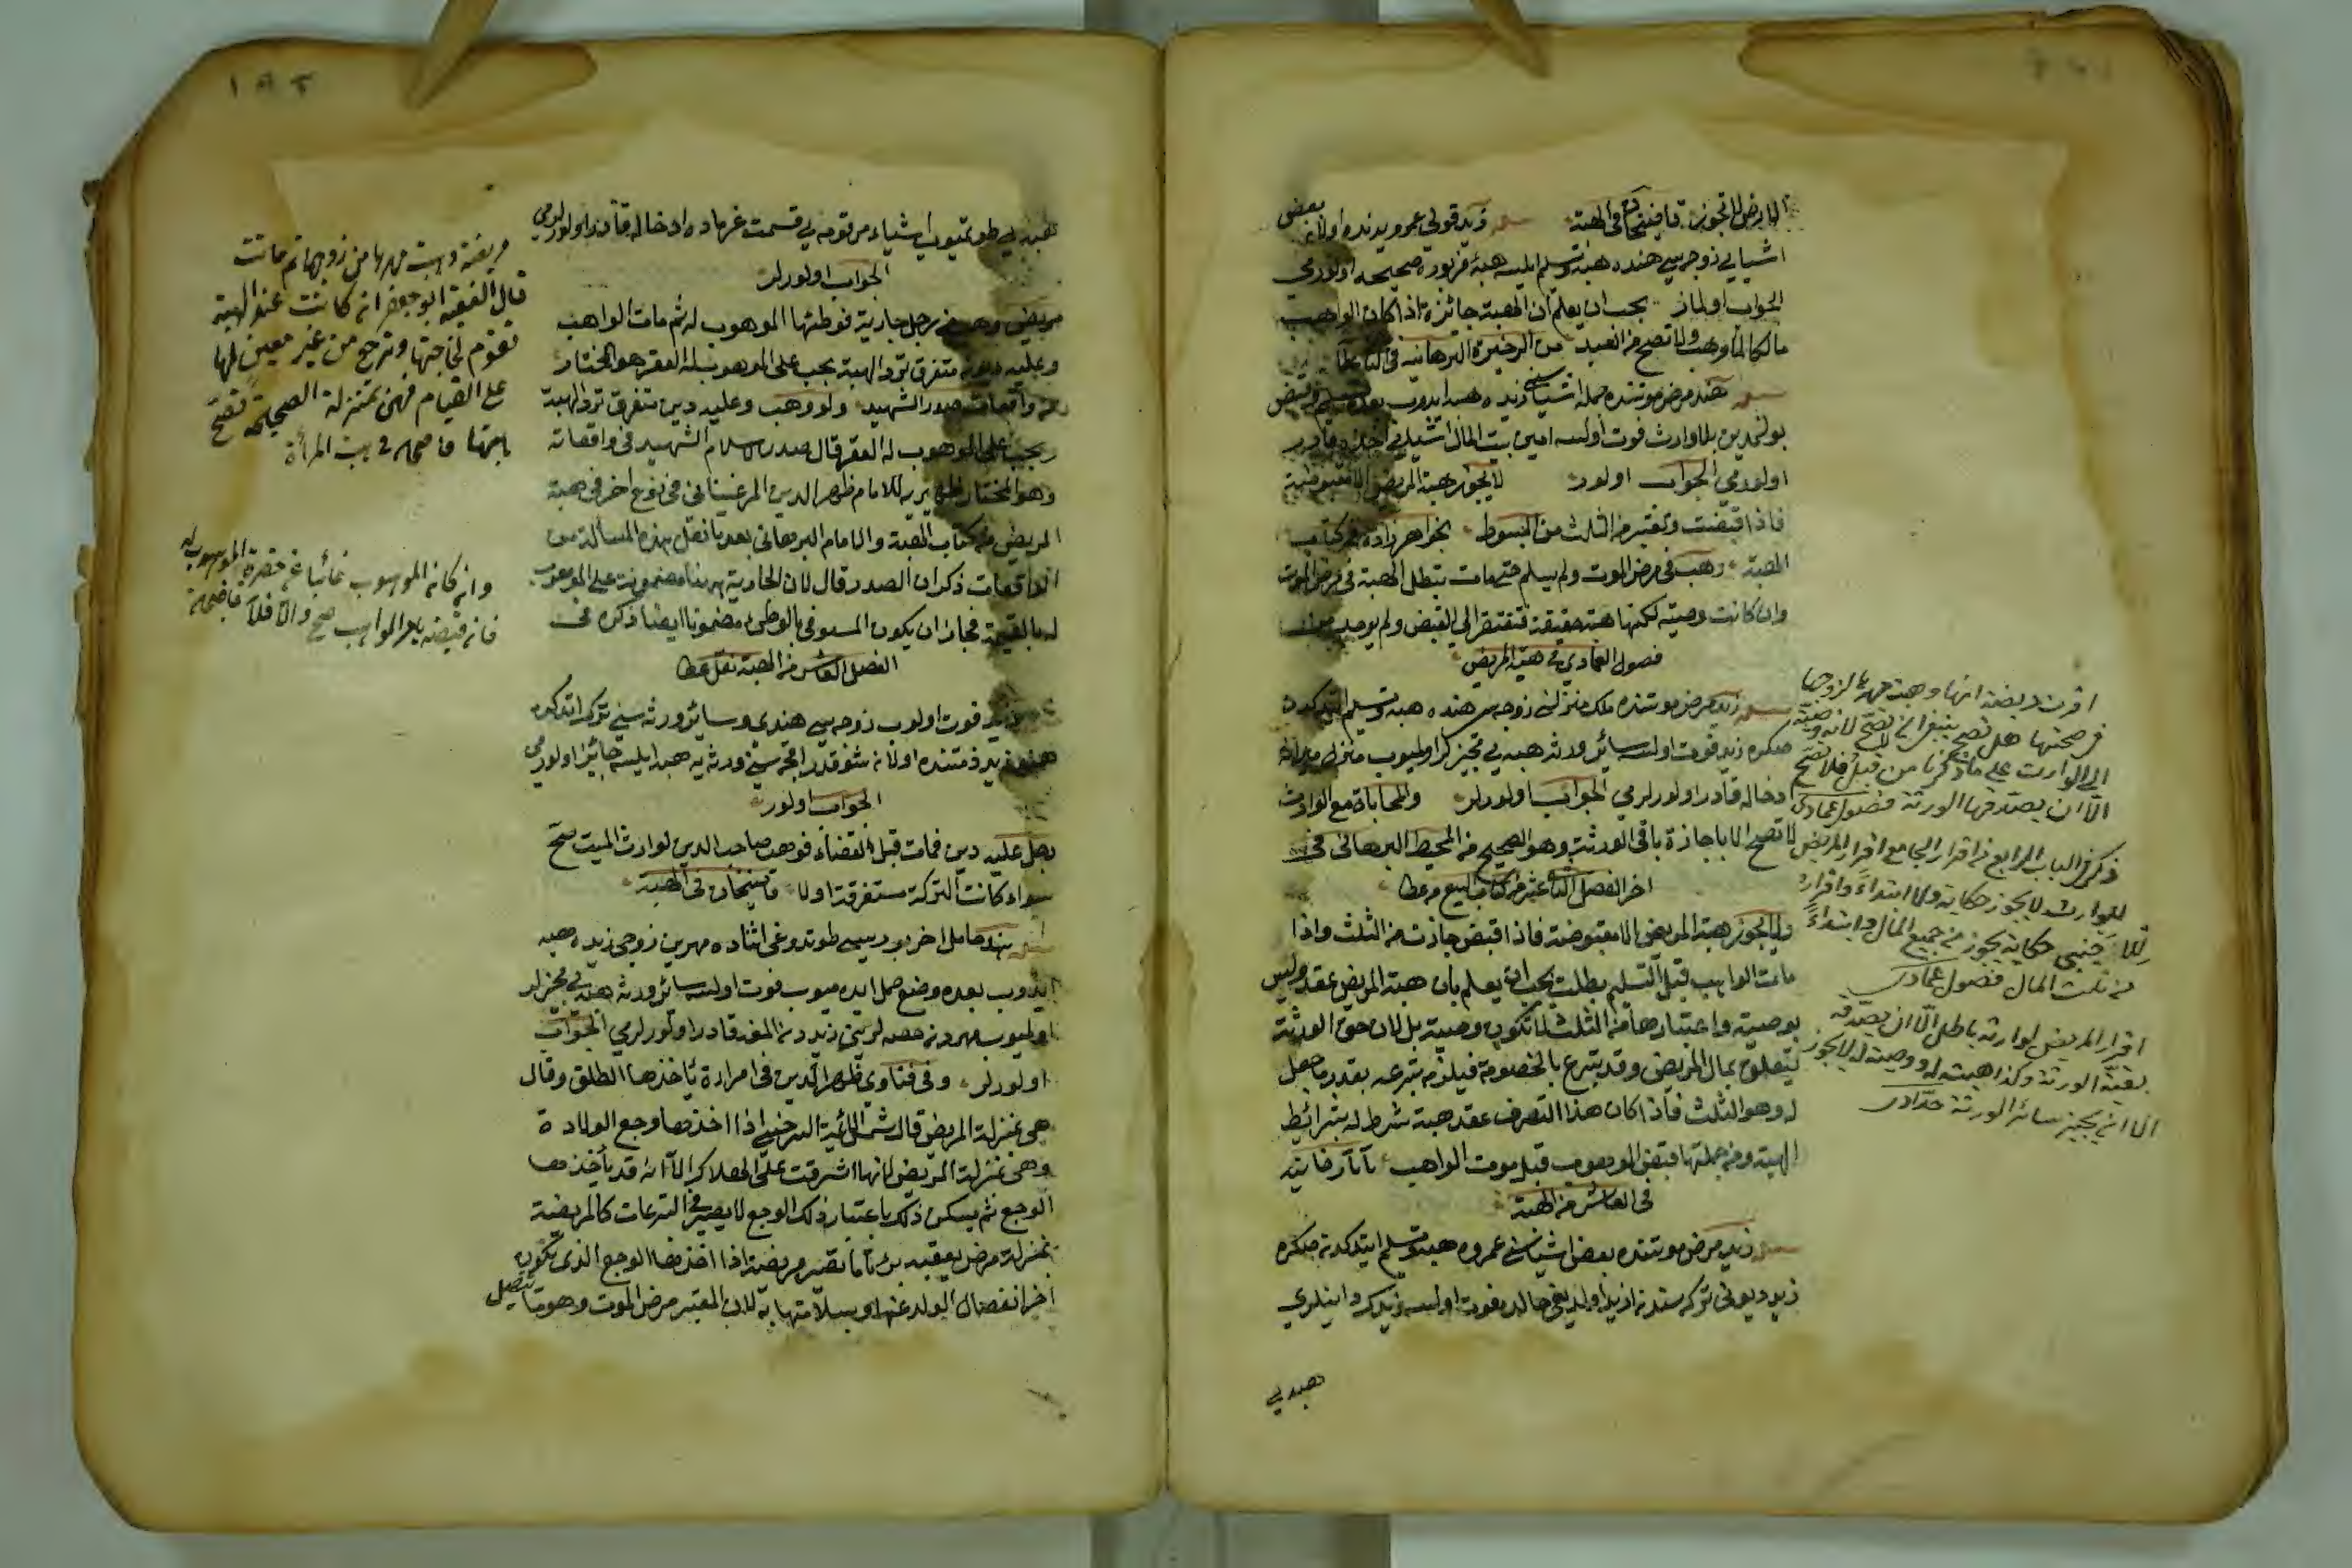 المريض لا تجوز قاضيخان في الهبة زيد قولى عمرو يدنده اولان بعض
اشيايى زوجه سى هنده هبه وتسليم ايلسه هبهٔ مزبوره صحيحه اولورمى
الجواب اولماز يجب ان يعلم ان الهبة جائزة اذا كان الواهب
مالكا لما وهب ولا تصح من العبد من الذخيرة البرهانية فى
هند مرض موتنده جمله اشياسنى زيده هبه ايدوب بعده تسليم وقبض
بولنمدين بلا وارث فوت اولسه امين بيت المال اشيايى اخذه قادر
اولورمى الجواب اولور لا يجوز هبة المريض الا مقبوضة
فاذا قبضت وتعتبر من الثلث من المبسوط بخواهرزاده من كتاب
الهبة وهب فى مرض الموت ولم يسلم حتى مات تبطل الهبة فى مرض الموت
وان كانت وصية لكنها هبة حقيقة فتفتقر الى القبض ولم يوجد
فصول العمادى فى هبة المريض
زيد مرض موتنده ملك منزلنى زوجه سى هنده هبه وتسليم ايتدكدن
صكره زيد فوت اولسه سائر ورثه هبه يى تجيز اولميوب منزلى ميراثه
ادخاله قادر اولورلرمى الجواب اولورلر والمحاباة مع الوارث
لا تصح الا باجازة باقى الورثة وهو الصحيح من المحيط البرهانى فى
اخر الفصل الثانى عشر من كتاب البيع
ولا يجوز هبة المريض الا مقبوضة فاذا قبض جازت من الثلث واذا
مات الواهب قبل التسليم بطلت يجب ان يعلم بان هبة المريض عقد وليس
بوصية واعتبارها من الثلث لا تكون وصية بل لان حق الورثة
يتعلق بمال المريض وقد تبرع بالخصومة فيلزم تبرعه بقدر ما جعل
له وهو الثلث فاذا كان هذا التصرف عقد هبة شرط له شرائط
الهبة ومن جملتها قبض الموهوب قبل موت الواهب تاتارخانيه
فى العاشر من الهبة
زيد مرض موتنده بعض اشياسنى عمروه هبه وتسليم ايتدكدن صكره
زيد ديونى تركه سندن ازيد اولديغى حالده فوت اولسه زيدك داينلرى
هبه يى
اقرت مريضة انها وهبت مهرها لزوجها
فى صحتها هل تصح ينبغى ان لا تصح لانه وصية
الى الوارث على ما ذكرنا من قبل فلا تصح
الا ان يصدقها الورثة فصول عمادى
ذكر فى الباب الرابع من اقرار الجامع اقرار المريض
للوارث لا يجوز حكاية ولا ابتداءً واقراره
للاجنبى حكاية يجوز من جميع المال وابتداءً
من ثلث المال فصول عمادى
اقرار المريض لوارثه باطل الا ان يصدقه
بقية الورثة وكذا هبته له ووصيته له لا يجوز
الا ان يجيز سائر الورثة حدادى
١٨٢
هبه يى طوتميوب اشياء مرقومه يى قسمت غرمايه ادخاله قادر اولورلرمى
الجواب اولورلر
مريض وهب من رجل جارية فوطئها الموهوب له ثم مات الواهب
وعليه ديون مستغرق ترد الهبة يجب على الموهوب له العقر هو المختار
من واقعات صدر الشهيد ولو وهب وعليه دين مستغرق ترد الهبة
ويجب على الموهوب له العقر قال صدر الاسلام الشهيد فى واقعاته
وهو المختار للامام ظهير الدين المرغينانى فى نوع اخر فى هبة
المريض من كتاب الهبة والامام البرهانى بعد ما نقل هذه المسألة من
الواقعات ذكر ان الصدر قال لان الجارية ههنا مضمونة على الموهوب
له بالقيمة فجاز ان يكون المستوفى بالوطئ مضمونا ايضا ذكره فى
الفصل العاشر من الهبة
زيد فوت اولوب زوجه سى هندى وسائر ورثه سنى ترك ايتدكده
هند زيد ذمتنده اولان شو قدر اقچه سنى ورثه يه هبه ايلسه جائز اولورمى
الجواب اولور
رجل عليه دين فمات قبل القضاء فوهب صاحب الدين لوارث الميت صح
سواء كانت التركة مستغرقة او لا قاضيخان فى الهبة
هند حامل اخر بو درسه طوتدوغى اثناده مهرين زوجى زيده هبه
ايدوب بعده وضع حمل ايده ميوب فوت اولسه سائر ورثه هبه يى تجيز
اولميوب مهردن حصه لرينى زيددن المغه قادر اولورلرمى الجواب
اولورلر وفى فتاوى ظهير الدين فى امراة ياخذها الطلق وقال
هى بمنزلة المريض قال شمس الائمة السرخسى اذا اخذها وجع الولادة
وهى بمنزلة المريض لانها اشرفت على الهلاك الا انه قد يأخذها
الوجع ثم يسكن ذلك باعتبار ذلك الوجع لا يصير فى التبرعات كالمريضة
بمنزلة مرض يعقبه برء تاما تصير مريضة اذا اخذها الوجع الذى يكون
اخرا انفصال الولد عنها او بسلامتها به لان المعتبر مرض الموت وهو ما يتصل
مريضة وهبت مهرها من زوجها ثم ماتت
قال الفقيه ابو جعفر ان كانت عند الهبة
تقوم لحاجتها وترجع من غير معين لها
على القيام فهى بمنزلة الصحيحة تصح
هبتها قاضيخان فى هبة المرأة
وان كان الموهوب غائبا عن حضرة الموهوب له
فان قبضه بامر الواهب صح والا فلا قاضيخان